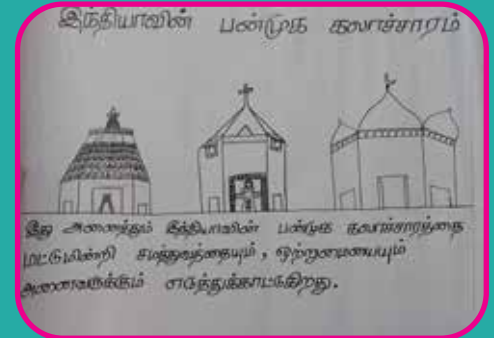 இந்தியாவின் பன்முக கலாச்சாரம்
இது அனைத்தும் இந்தியாவின் பன்முக கலாச்சாரத்தை
மட்டுமின்றி சமத்துவத்தையும், ஒற்றுமையையும்
அனைவருக்கும் எடுத்துக்காட்டுகிறது.